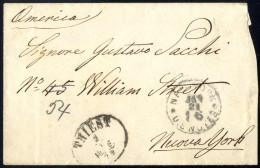 America
Signore Gustavo Sacchi
No 45 William Street
54
Nuova York
TRIEST